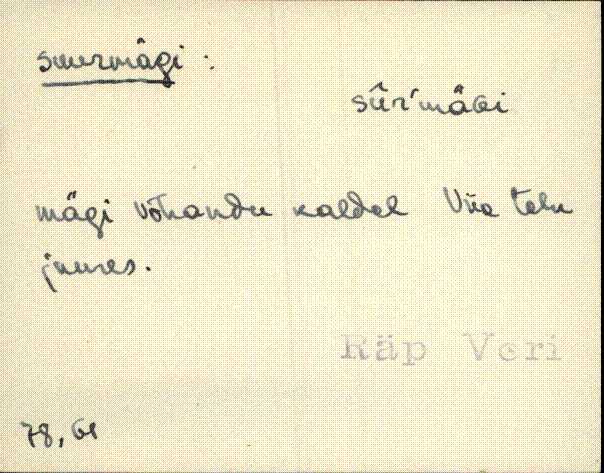 suurmägi :
sûr'mäGi
mägi Võhandu kaldel Viia talu
juures.
Räp Veri
78, 61